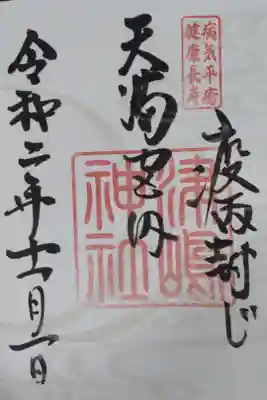 病気平癒
健康長寿
疫病封じ
天満宮内
津嶋
神社
令和二年十一月一日